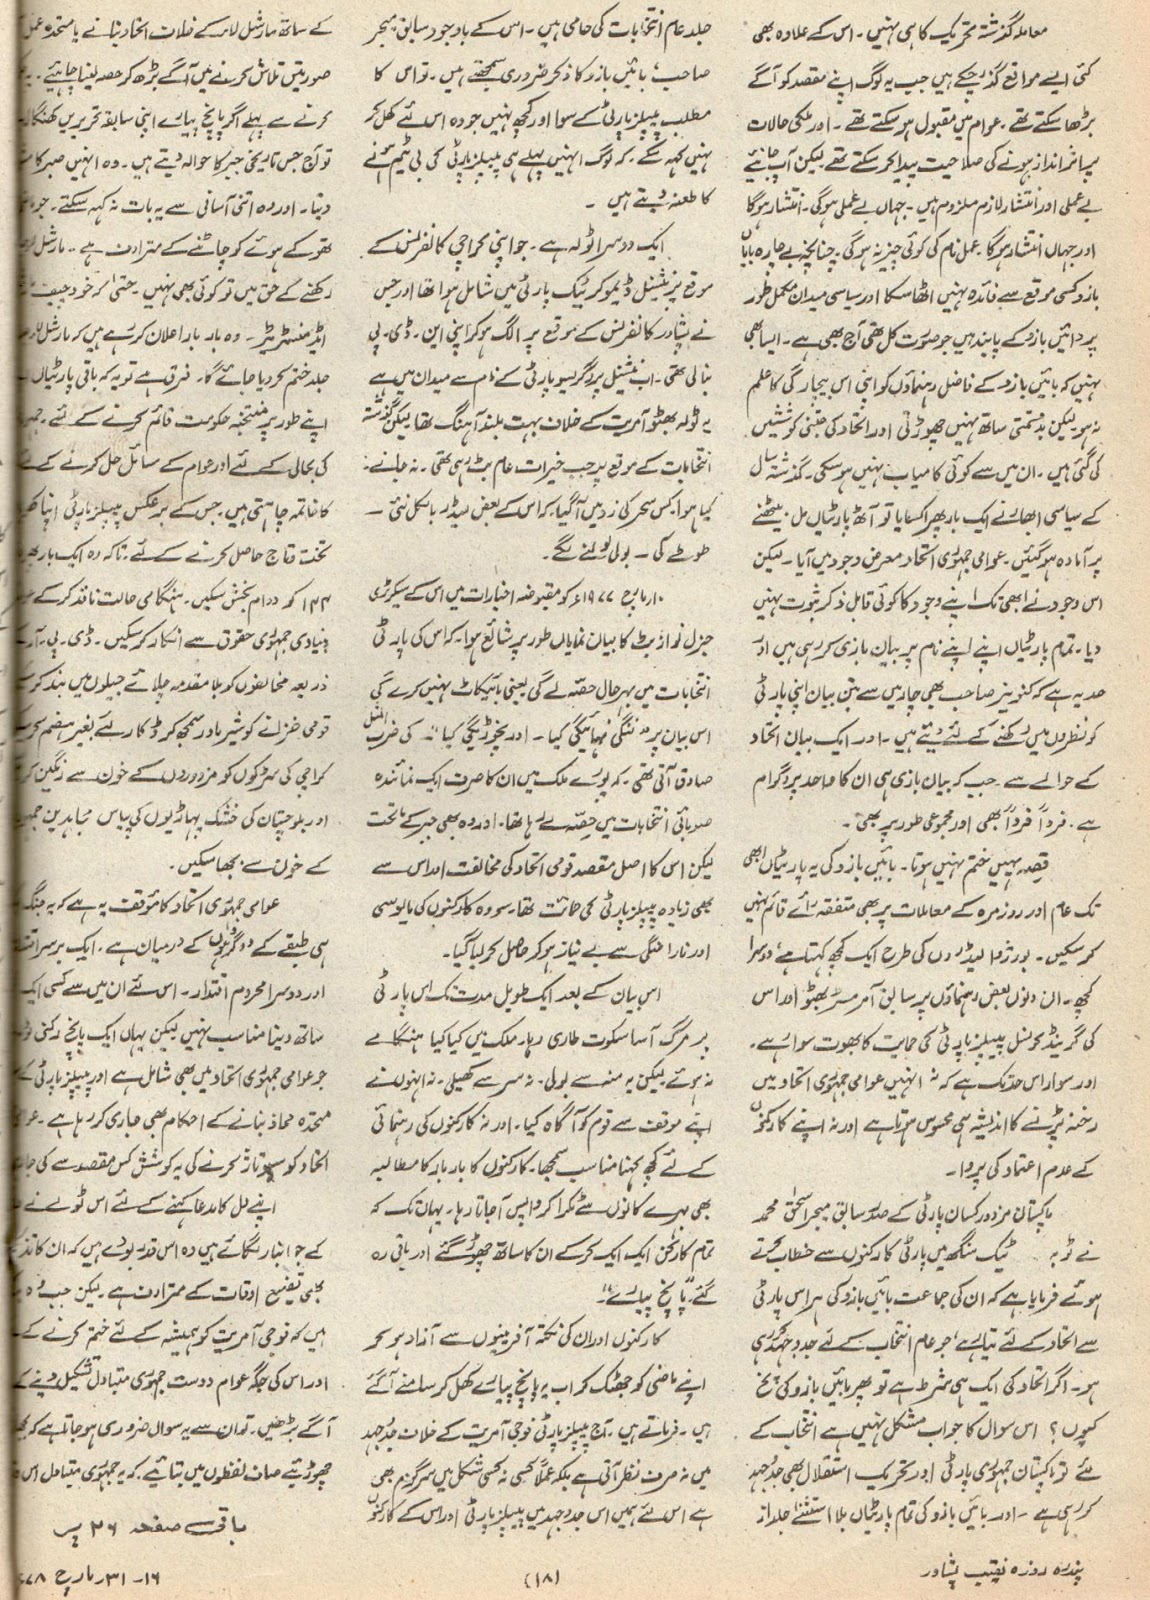 معاملہ گذشتہ تحریک کا ہی نہیں ۔ اس کے علاوہ بھی
کئی ایسے مواقع گذر چکے ہیں جب یہ لوگ اپنے مقصد کو آگے
بڑھا سکتے تھے ۔ عوام میں مقبول ہو سکتے تھے ۔ اور ملکی حالات
پر اثر انداز ہونے کی صلاحیت پیدا کر سکتے تھے لیکن آپ جانیئے
بے عملی اور انتشار لازم ملزوم ہیں ۔ جہاں بے عملی ہوگی ۔ انتشار ہوگا
اور جہاں انتشار ہوگا ۔ عمل نام کی کوئی چیز نہ ہوگی ۔ چنانچہ بے چارہ بایاں
بازو کسی موقع سے فائدہ نہیں اٹھا سکا اور سیاسی میدان مکمل طور
پر دائیں بازو کے پابند ہیں جو صورت کل تھی آج بھی ہے ۔ ایسا بھی
نہیں کہ بائیں بازو کے فاضل رہنماؤں کو اپنی اس بیچارگی کا علم
نہ ہو لیکن بدقسمتی ساتھ نہیں چھوڑتی اور اتحاد کی جتنی کوششیں
کی گئی ہیں ۔ ان میں سے کوئی کامیاب نہیں ہو سکی ۔ گذشتہ سال
کے سیاسی ابھار نے ایک بار پھر اکسایا تو آٹھ پارٹیاں مل بیٹھنے
پر آمادہ ہو گئیں ۔ عوامی جمہوری اتحاد معرض وجود میں آیا ۔ لیکن
اس وجود نے ابھی تک اپنے وجود کا کوئی قابل ذکر ثبوت نہیں
دیا ۔ تمام پارٹیاں اپنے اپنے نام پر بیان بازی کر رہی ہیں اور
حد یہ ہے کہ کنوینر صاحب بھی چار میں سے تین بیان اپنی پارٹی
کو نظروں میں رکھنے کے لئے دیتے ہیں ۔ اور ایک بیان اتحاد
کے حوالے سے ۔ جب کہ بیان بازی ہی ان کا واحد پروگرام
ہے ۔ فرداً فرداً بھی اور مجموعی طور پر بھی ۔
قصہ یہیں ختم نہیں ہوتا ۔ بائیں بازو کی یہ پارٹیاں ابھی
تک عام اور روزمرہ کے معاملات پر بھی متفقہ رائے قائم نہیں
کر سکیں ۔ بورژوا لیڈروں کی طرح ایک کچھ کہتا ہے ، دوسرا
کچھ ۔ ان دنوں بعض رہنماؤں پر سابق آمر مسٹر بھٹو اور اس
کی گرینڈ کونسل پیپلز پارٹی کی حمایت کا بھوت سوار ہے ۔
اور سوار اس حد تک ہے کہ نہ انہیں عوامی جمہوری اتحاد میں
رخنہ پڑنے کا اندیشہ ہی محسوس ہوتا ہے اور نہ اپنے کارکنوں
کے عدم اعتماد کی پروا ۔
پاکستان مزدور کسان پارٹی کے صدر سابق میجر اسحٰق محمد
نے ٹوبہ ٹیک سنگھ میں پارٹی کارکنوں سے خطاب کرتے
ہوئے فرمایا ہے کہ ان کی جماعت بائیں بازو کی ہر اس پارٹی
سے اتحاد کے لئے تیار ہے جو عام انتخاب کے لئے جدوجہد کر رہی
ہو ۔ اگر اتحاد کی ایک ہی شرط ہے تو پھر بائیں بازو کی پخ
کیوں ؟ اس سوال کا جواب مشکل نہیں ہے انتخاب کے
لئے تو پاکستان جمہوری پارٹی اور تحریک استقلال بھی جدوجہد
کر رہی ہے ۔ اور بائیں بازو کی تمام پارٹیاں بلا استثنےٰ جلد از
جلد عام انتخابات کی حامی ہیں ۔ اس کے باوجود سابق میجر
صاحب ، بائیں بازو کا ذکر ضروری سمجھتے ہیں ۔ تو اس کا
مطلب پیپلز پارٹی کے سوا اور کچھ نہیں جو وہ اس لئے کھل کر
نہیں کہہ سکے ۔ کہ لوگ انہیں پہلے ہی پیپلز پارٹی کی بی ٹیم ہونے
کا طعنہ دیتے ہیں ۔
ایک دوسرا ٹولہ ہے ۔ جو اپنی کراچی کانفرنس کے
موقع پر نیشنل ڈیموکریٹک پارٹی میں شامل ہوا تھا اور جس
نے پشاور کانفرنس کے موقع پر الگ ہو کر اپنی این ۔ ڈی ۔ پی
بنا لی تھی ۔ اب نیشنل پروگریسو پارٹی کے نام سے میدان میں ہے
یہ ٹولہ بھٹو آمریت کے خلاف بہت بلند آہنگ تھا لیکن گذشتہ
انتخابات کے موقع پر جب خیرات عام بٹ رہی تھی ۔ نہ جانے :
کیا ہوا ۔ کس سحر کی زد میں آ گیا کہ اس کے بعض لیڈر بالکل نئی ۔
طوطے کی ۔ بولی بولنے لگے ۔
۱۰ مارچ ۱۹۷۷ کو مقبوضہ اخبارات میں اس کے سیکرٹری
جنرل نواز بٹ کا بیان نمایاں طور پر شائع ہوا ۔ کہ اس کی پارٹی
انتخابات میں بہرحال حصہ لے گی یعنی بائیکاٹ نہیں کرے گی
اس بیان پر " ننگی نہائیگی کیا ۔ اور نچوڑیگی کیا " کی ضرب المثل
صادق آتی تھی ۔ کہ پورے ملک میں ان کا صرف ایک نمائندہ
صوبائی انتخابات میں حصہ لے رہا تھا ۔ اور وہ بھی جبر کے ماتحت
لیکن اس کا اصل مقصد قومی اتحاد کی مخالفت اور اس سے
بھی زیادہ پیپلز پارٹی کی حمائت تھا ۔ سو وہ کارکنوں کی مایوسی
اور ناراضگی سے بے نیاز ہو کر حاصل کر لیا گیا ۔
اس بیان کے بعد ایک طویل مدت تک اس پارٹی
پر مرگ آسا سکوت طاری رہا ۔ ملک میں کیا کیا ہنگامے
نہ ہوئے لیکن یہ منہ سے بولی ۔ نہ سر سے کھیلی ۔ نہ انہوں نے
اپنے موقف سے قوم کو آگاہ کیا ۔ اور نہ کارکنوں کی رہنمائی
کے لئے کچھ کہنا مناسب سمجھا ۔ کارکنوں کا بار بار کا مطالبہ
بھی بہرے کانوں سے ٹکرا کر واپس آ جاتا رہا ۔ یہاں تک کہ
تمام کارکن ایک ایک کر کے ان کا ساتھ چھوڑ گئے اور باقی رہ
گئے " پانچ پیارے " ۔
کارکنوں اور ان کی نکتہ آفرینوں سے آزاد ہو کر
اپنے ماضی کو جھٹک کر اب یہ پانچ پیارے کھل کر سامنے آ گئے
ہیں ۔ فرماتے ہیں ۔ آج پیپلز پارٹی فوجی آمریت کے خلاف جدوجہد
میں نہ صرف نظر آتی ہے بلکہ عملاً کسی نہ کسی شکل میں سرگرم بھی
ہے اس لئے ہمیں اس جدوجہد میں پیپلز پارٹی اور اس کے کارکنوں
کے ساتھ مارشل لاء کے خلاف اتحاد بنانے یا متحدہ عمل
صورتیں تلاش کرنے میں آگے بڑھ کر حصہ لینا چاہئے ۔ یہ
کرنے سے پہلے اگر پانچ پیارے اپنی سابقہ تحریریں کھنگال
تو آج جس تاریخی جبر کا حوالہ دیتے ہیں ۔ وہ انہیں صبر کا
دیتا ۔ اور وہ اتنی آسانی سے یہ بات نہ کہہ سکتے ۔ جو
تھوکے ہوئے کو چاٹنے کے مترادف ہے ۔ مارشل لاء
رکھنے کے حق میں تو کوئی بھی نہیں ۔ حتیٰ کہ خود چیف
ایڈمنسٹریٹر ۔ وہ بار بار اعلان کر رہے ہیں کہ مارشل لاء
جلد ختم کر دیا جائے گا ۔ فرق ہے تو یہ کہ باقی پارٹیاں
اپنے طور پر منتخبہ حکومت قائم کرنے کے لئے ۔
کی بحالی کے لئے اور عوام کے مسائل حل کرنے کے لئے
کا خاتمہ چاہتی ہیں ۔ جس کے برعکس پیپلز پارٹی اپنا
تخت و تاج حاصل کرنے کے لئے ؛ تاکہ وہ ایک بار پھر
۱۴۴ کو دوام بخش سکیں ۔ ہنگامی حالت نافذ کر کے
بنیادی جمہوری حقوق سے انکار کر سکیں ۔ ڈی ۔ پی ۔ آر
ذریعہ مخالفوں کو بلا مقدمہ چلائے جیلوں میں بند کر
قومی خزانے کو شیر مادر سمجھ کر ڈکار لئے بغیر ہضم کر
کراچی کی سڑکوں کو مزدوروں کے خون سے رنگین کر
اور بلوچستان کی خشک پہاڑیوں کی پیاس مجاہدین
کے خون سے بجھا سکیں ۔
عوامی جمہوری اتحاد کا مؤقف یہ ہے کہ یہ جنگ
ہی طبقے کے دو گروہوں کے درمیان ہے ۔ ایک برسر
اور دوسرا محروم اقتدار ۔ اس لئے ان میں سے کسی ایک
ساتھ دینا مناسب نہیں لیکن یہاں ایک پانچ رکنی ٹولہ
جو عوامی جمہوری اتحاد میں بھی شامل ہے اور پیپلز پارٹی کے
متحدہ محاذ بنانے کے احکام بھی جاری کر رہا ہے ۔
اتحاد کو سبوتاژ کرنے کی یہ کوشش کس مقصد سے کی
اپنے دل کا مدعا کہنے کے لئے اس ٹولے نے
کے جو انبار لگائے ہیں وہ اس قدر بودے ہیں کہ ان کا
بھی تضیع اوقات کے مترادف ہے ۔ لیکن جب وہ
ہیں کہ فوجی آمریت کو ہمیشہ کے لئے ختم کرنے کے
اور اس کی جگہ عوام دوست جمہوری متبادل تشکیل دینے کے
آگے بڑھیں ۔ تو ان سے یہ سوال ضروری ہو جاتا ہے کہ
چھوڑیئے صاف لفظوں میں بتائیے کہ یہ جمہوری متبادل اس
باقی صفحہ ۲۶ پر
پندرہ روزہ نقیب پشاور
(۱۸)
۱۶ - ۳۱ مارچ ۷۸